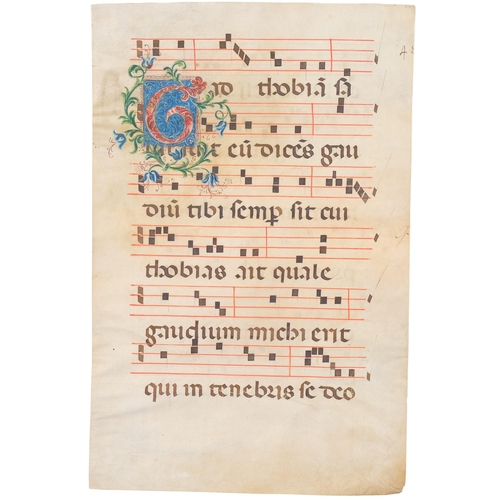 G ad thobiā sa
lutavit eū dicēs gau
diū tibi semp sit cui
thobias ait quale
gaudium michi erit
qui in tenebris se deo